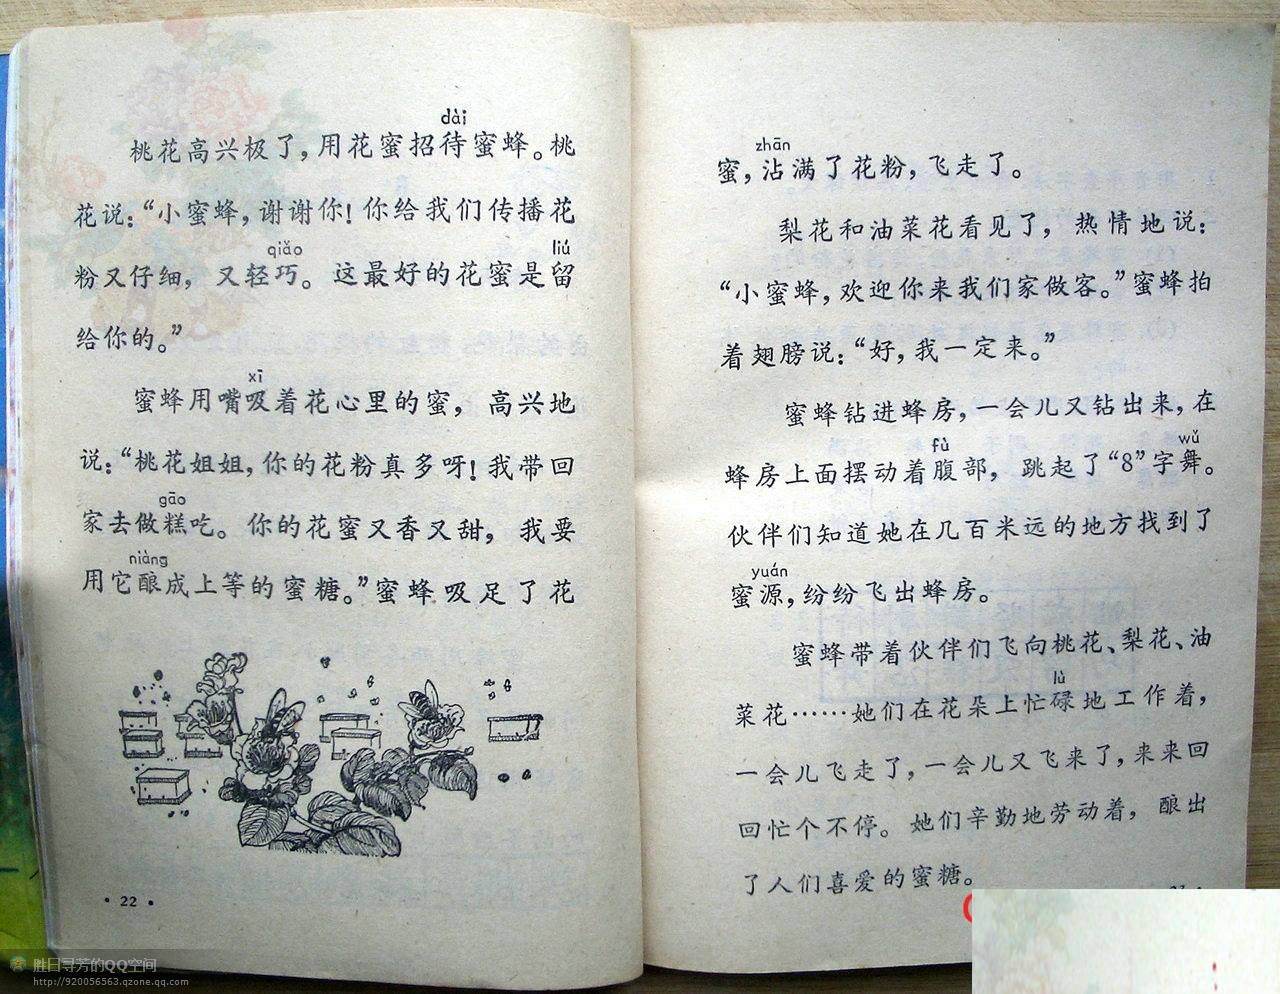 dài
桃花高兴极了，用花蜜招待蜜蜂。桃
花说：“小蜜蜂，谢谢你！你给我们传播花
qiǎo liú
粉又仔细，又轻巧。这最好的花蜜是留
给你的。”
xī
蜜蜂用嘴吸着花心里的蜜，高兴地
说：“桃花姐姐，你的花粉真多呀！我带回
gāo
家去做糕吃。你的花蜜又香又甜，我要
niàng
用它酿成上等的蜜糖。”蜜蜂吸足了花
· 22 ·
zhān
蜜，沾满了花粉，飞走了。
梨花和油菜花看见了，热情地说：
“小蜜蜂，欢迎你来我们家做客。”蜜蜂拍
着翅膀说：“好，我一定来。”
蜜蜂钻进蜂房，一会儿又钻出来，在
fù wǔ
蜂房上面摆动着腹部，跳起了“8”字舞。
伙伴们知道她在几百米远的地方找到了
yuán
蜜源，纷纷飞出蜂房。
蜜蜂带着伙伴们飞向桃花、梨花、油
lù
菜花……她们在花朵上忙碌地工作着，
一会儿飞走了，一会儿又飞来了，来来回
回忙个不停。她们辛勤地劳动着，酿出
了人们喜爱的蜜糖。
胜日寻芳的QQ空间
http://920056563.qzone.qq.com